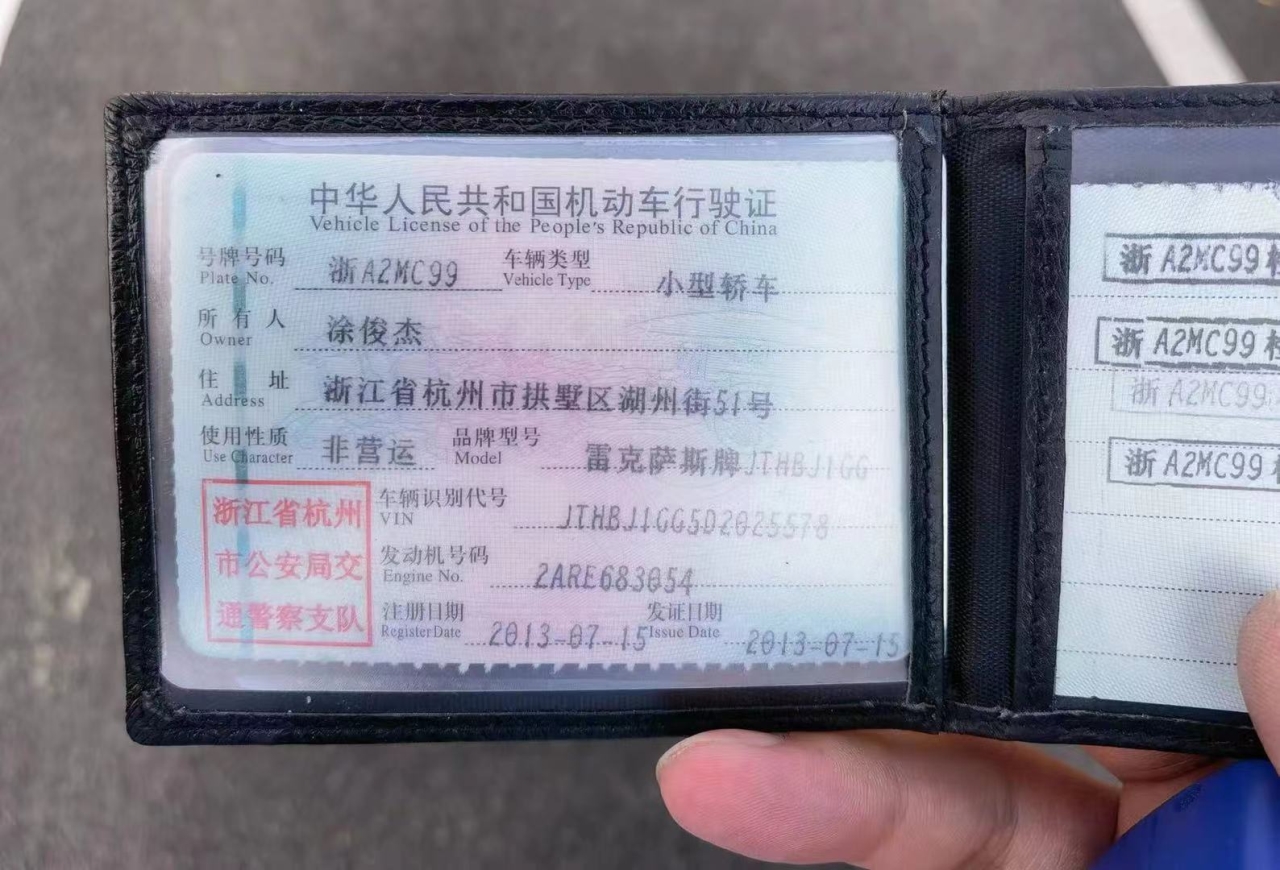 中华人民共和国机动车行驶证
Vehicle License of the People's Republic of China
号牌号码 浙A2MC99 车辆类型 小型轿车
Plate No. Vehicle Type
所有人 涂俊杰
Owner
住址 浙江省杭州市拱墅区湖州街51号
Address
使用性质 非营运 品牌型号 雷克萨斯牌JTHBJ1GG
Use Character Model
浙江省杭州
市公安局交
通警察支队
车辆识别代号 JTHBJ1GG5D2025578
VIN
发动机号码 2ARE683054
Engine No.
注册日期 2013-07-15 发证日期 2013-07-15
Register Date Issue Date
浙A2MC99
浙A2MC99
浙A2MC99
浙A2MC99